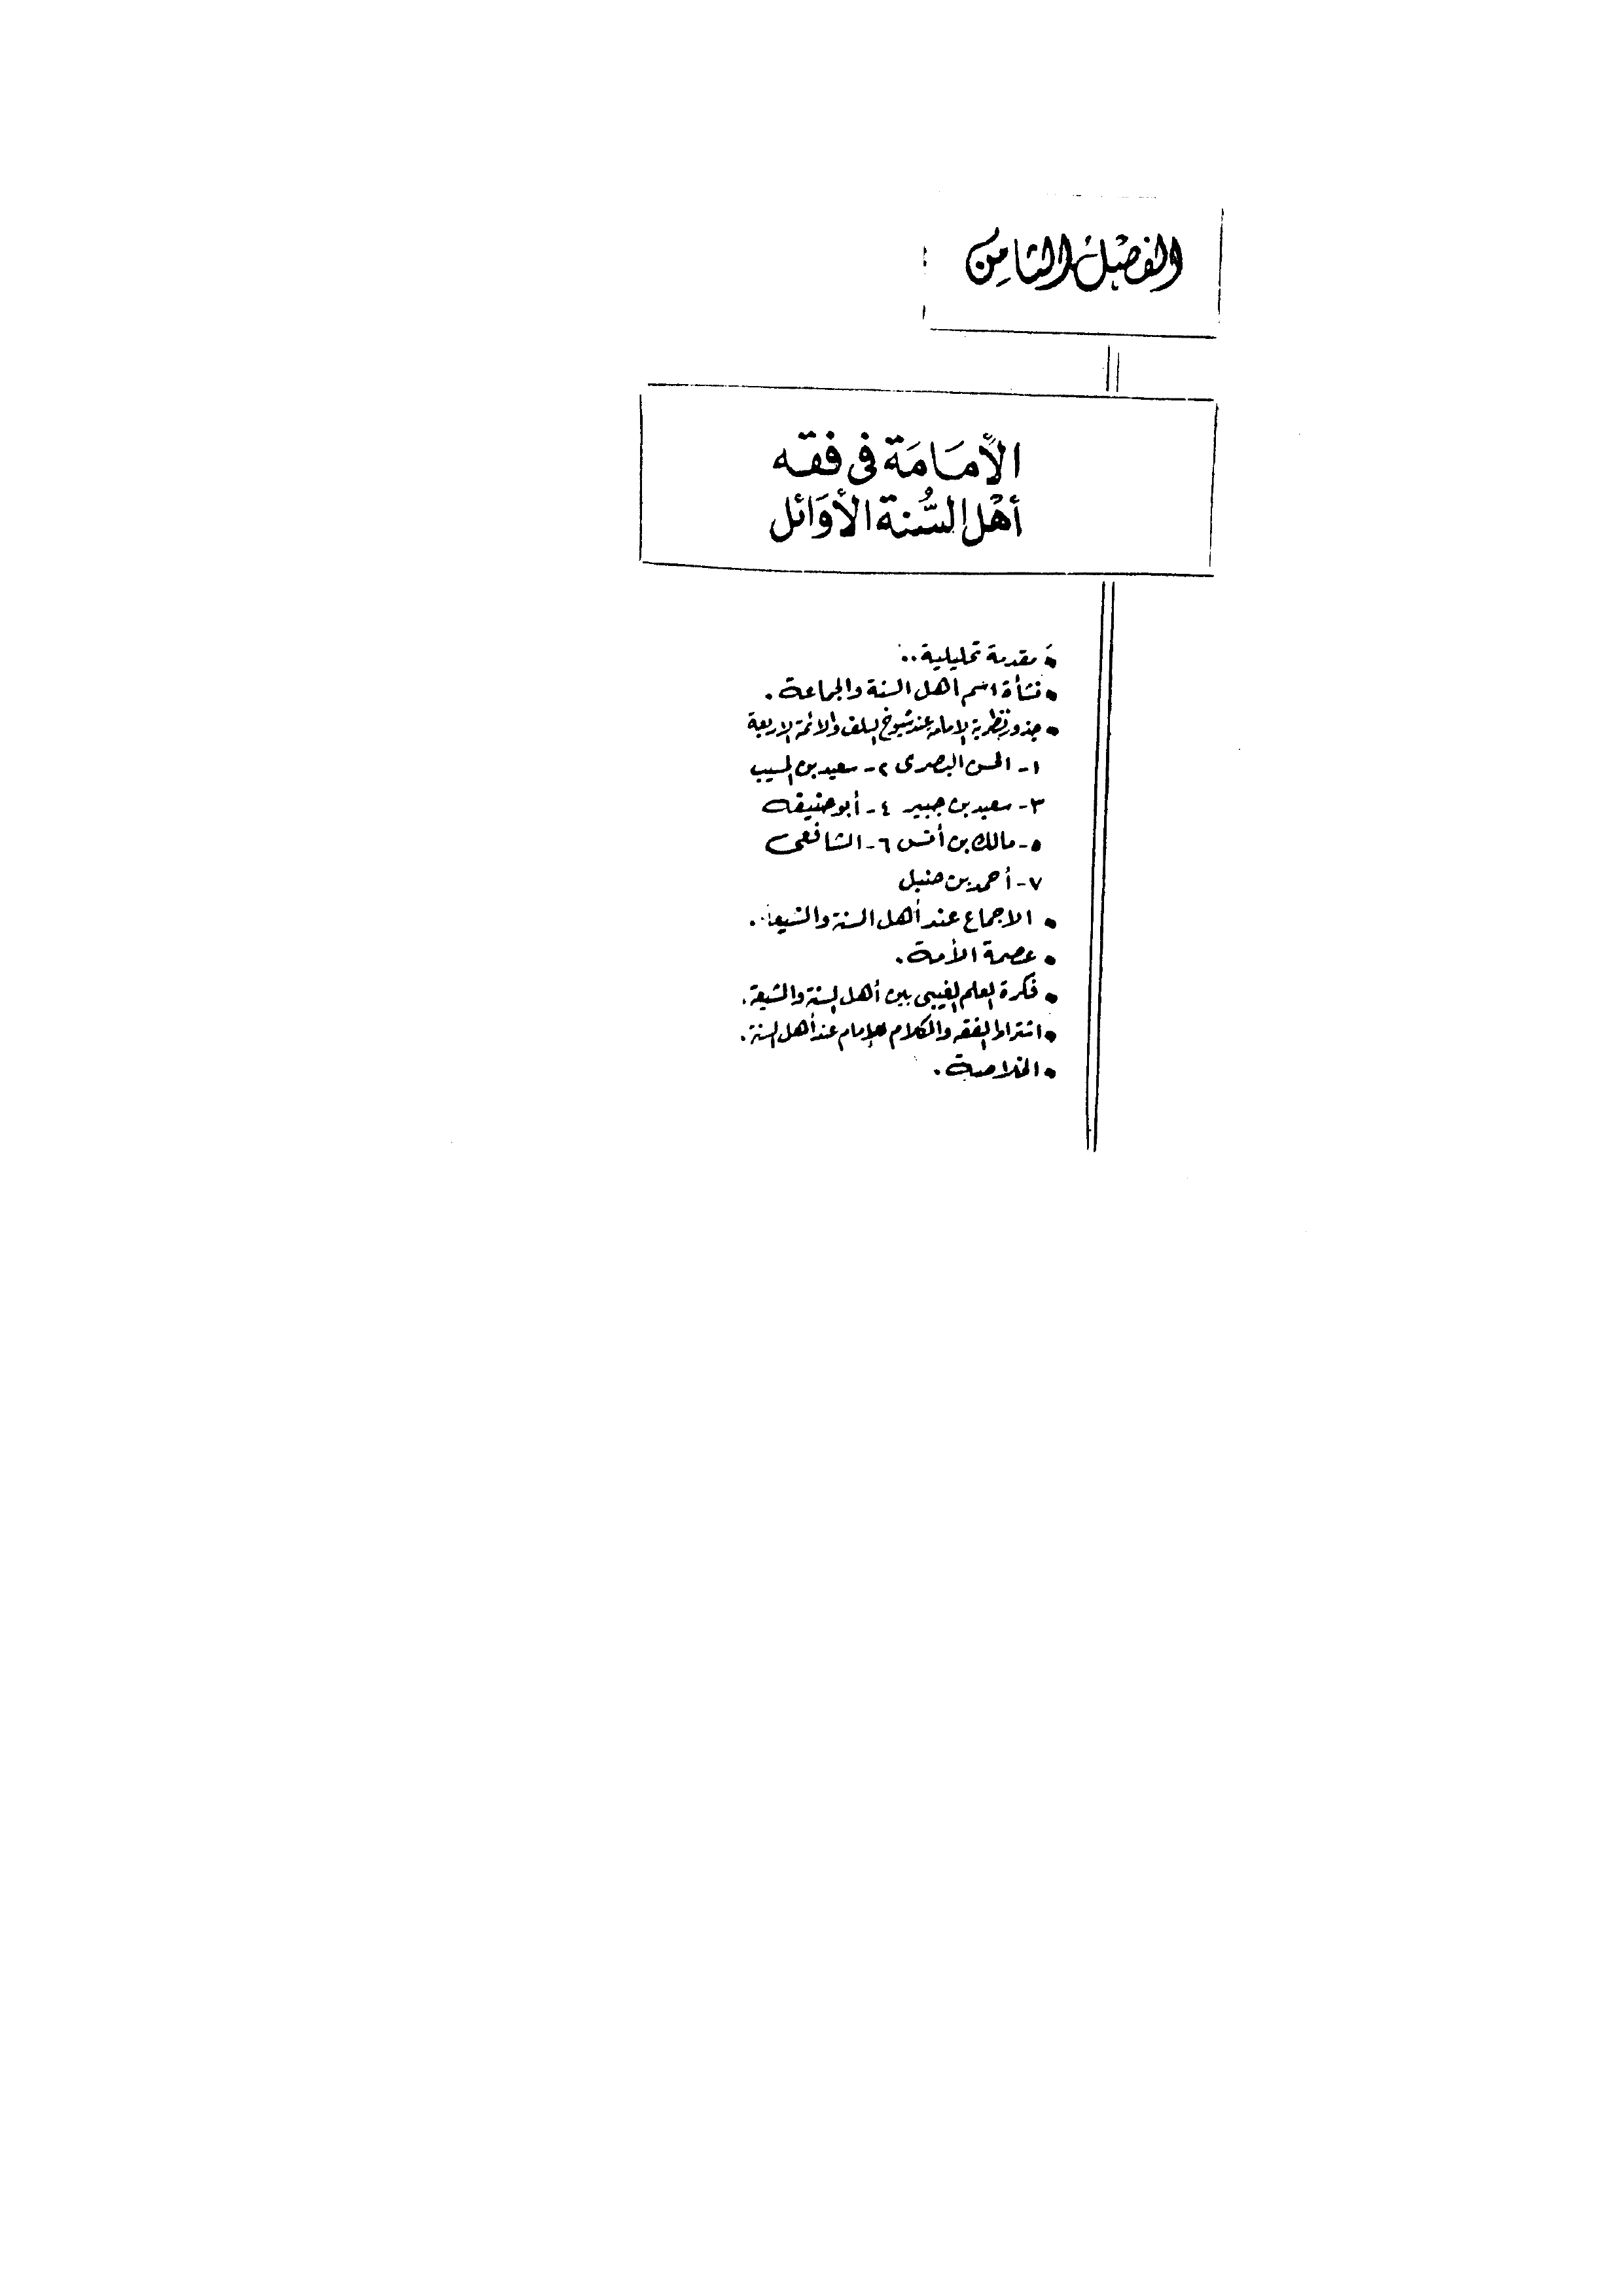 الفصل الثامن
الأمامة فى فقه
أهل السنة الأوائل
• مقدمة تحليلية..
• نشأة اسم أهل السنة والجماعة.
• جذور نظرية الامامة عند شيوخ السلف والائمة الاربعة
١- الحسن البصرى ٢- سعيد بن المسيب
٣- سعيد بن جبير ٤- أبو حنيفه
٥- مالك بن أنس ٦- الشافعى
٧- أحمد بن حنبل
• الاجماع عند أهل السنة والشيعة.
• عصمة الأمة.
• فكرة العلم الغيبى بين أهل السنة والشيعة.
• اشتراط الفقه والكلام للإمام عند أهل السنة.
• الخلاصة.